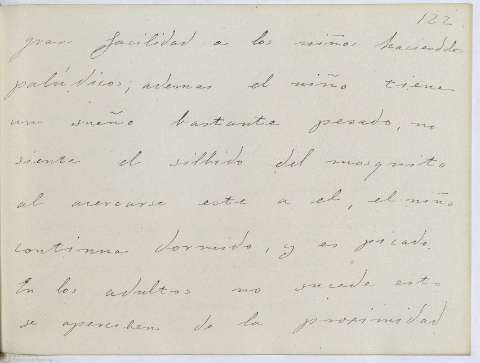 122
gran facilidad a los niños haciendolos
palúdicos; ademas el niño tiene
un sueño bastante pesado, no
siente el silbido del mosquito
al acercarse este a el, el niño
continua dormido, y es picado.
En los adultos no sucede esto
se aperciben de la proximidad